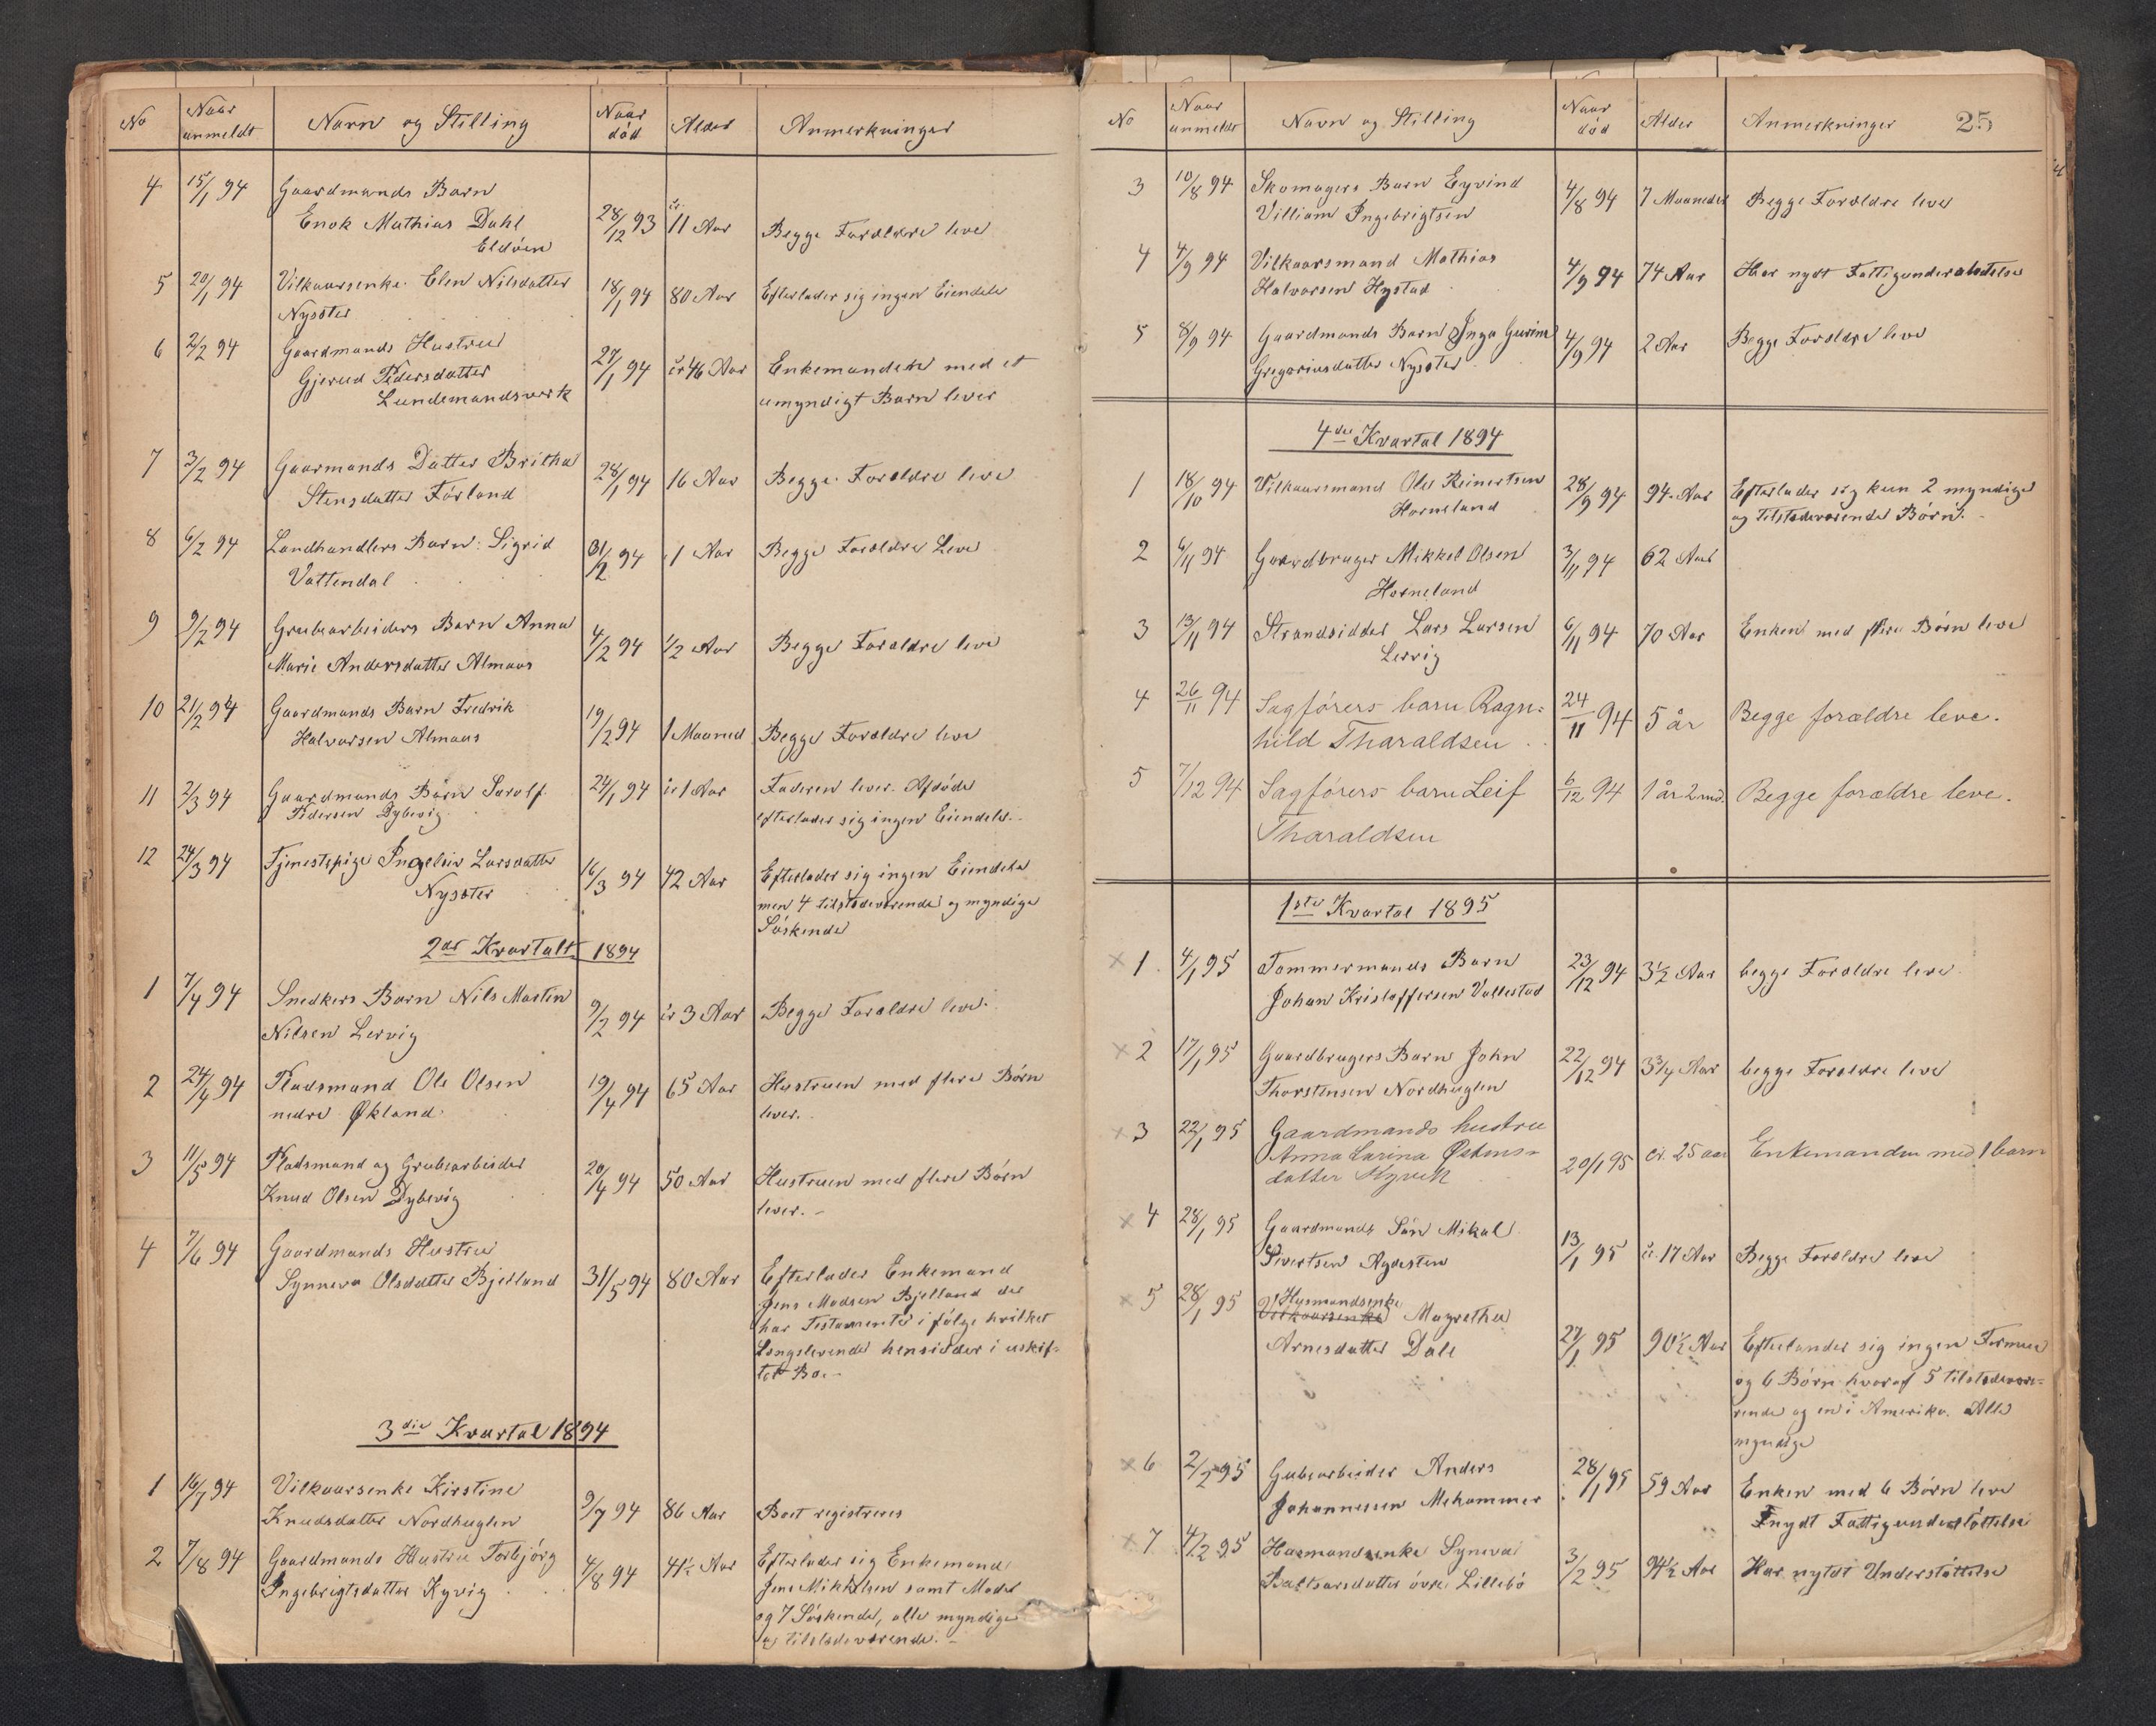 No
Naar anmeldt
Navn og Stilling
Naar død
Alder
Anmerkninger
4 15/1 94 Gaardmands Barn
Enok Mathias Dahl 28/12 93 cr 11 Aar Begge Forældre leve
Eldøen
5 20/1 94 Vilkaarsenke Elen Nilsdatter 18/1 94 80 Aar Efterlader sig ingen Eiendele
Nysæter
6 2/2 94 Gaardmands Hustru
Gjerud Pedersdatter 27/1 94 cr 46 Aar Enkemanden med et
Lundemandsverk umyndigt Barn lever
7 3/2 94 Gaarmands Datter Britha
Stensdatter Førland 28/1 94 16 Aar Begge Forældre leve
8 6/2 94 Landhandlers Barn Sigrid 31/2 94 1 Aar Begge Forældre Leve
Vattendal
9 9/2 94 Grubearbeiders Barn Anna
Marie Andersdatter Almaas 4/2 94 1/2 Aar Begge Forældre leve
10 21/2 94 Gaardmands Barn Fredrik
Halvorsen Almaas 19/2 94 1 Maaned Begge Forældre leve
11 2/3 94 Gaardmands Barn Sarolf 24/1 94 cr 1 Aar Faderen lever. Afdøde
Pedersen Dybevig efterlader sig ingen Eiendele.
12 24/3 94 Tjenestepige Ingeleiv Larsdatter 16/3 94 42 Aar Efterlader sig ingen Eiendele
Nysæter men 4 tilstedeværende og myndige
Søskende
2det Kvartalt 1894
1 7/4 94 Snedkers Barn Nils Martin
Nilsen Lervig 9/2 94 cr 3 Aar Begge Forældre leve.
2 24/4 94 Pladsmand Ole Olsen 19/4 94 65 Aar Hustruen med flere Børn
nedre Økland lever.
3 11/5 94 Pladsmand og Grubearbeider
Knud Olsen Dybevig 20/4 94 50 Aar Hustruen med flere Børn
lever.
4 7/6 94 Gaardmands Hustru
Synneva Olsdatter Bjelland 31/5 94 80 Aar Efterlader Enkemand
Jens Madsen Bjelland der
har Testamente i følge hvilket
Længslevende hensidder i uskif-
tet Bo.
3die Kvartal 1894
1 16/7 94 Vilkaarsenke Kirstine
Knudsdatter Nordhuglen 9/7 94 86 Aar Boet registreres
2 7/8 94 Gaardmands Hustru Torbjørg 4/8 94 41½ Aar Efterlader sig Enkemand
Ingebrigtsdatter Kyvig Jens Mikkelsen samt Moder
og 7 Søskende, alle myndige
og tilstedeværende.
No
Naar anmeldt
Navn og Stilling
Naar død
Alder
Anmerkninger
25
3 10/8 94 Skomagers Barn Eyvind
Villiam Ingebrigtsen 4/8 94 7 Maaneder Begge Forældre leve
4 4/9 94 Vilkaarsmand Mathias
Halvorsen Hystad 4/9 94 74 Aar Har nydt Fattigunderstøttelse
5 8/9 94 Gaardmands Barn Inga Gurine
Gregoriusdatter Nysæter 4/9 94 2 Aar Begge Forældre leve
4de Kvartal 1894
1 18/10 94 Vilkaarsmand Ole Reinertsen 28/9 94 94 Aar Efterlader sig kun 2 myndige
Horneland og tilstedeværende Børn.
2 6/11 94 Gaardbruger Mikkel Olsen 3/11 94 62 Aar
Horneland
3 13/11 94 Strandsidder Lars Larsen 6/11 94 70 Aar Enken med flere Børn leve
Lervig
4 26/11 94 Sagførers barn Ragn=
hild Tharaldsen 24/11 94 5 år Begge forældre leve.
5 7/12 94 Sagførers barn Leif 6/12 94 1 år 2 md. Begge forældre leve.
Tharaldsen
1ste Kvartal 1895
× 1 4/1 95 Tømmermands Barn
Johan Kristoffersen Vallestad 23/12 94 3½ Aar begge Forældre leve
× 2 17/1 95 Gaardbrugers Barn John
Thorstensen Nordhuglen 22/12 94 3¾ Aar begge Forældre leve
× 3 22/1 95 Gaardmands hustru
Anna Larina Østens-
datter Kyvik 20/1 95 cr. 25 aar Enkemanden med 1 barn
× 4 28/1 95 Gaardmands Søn Mikal
Sivertsen Agdesten 13/1 95 cr. 17 Aar Begge Forældre leve
× 5 28/1 95 Husmandsenke
Vilkaarsenke Magretha
Arnesdatter Dale 27/1 95 90½ Aar Efterlander sig ingen Formue
og 6 Børn hvoraf 5 tilstedevæ-
rende og en i Amerika. Alle
myndige
× 6 2/2 95 Gubearbeider Anders
Johannessen Mehammer 28/1 95 59 Aar Enken med 6 Børn leve
nydt Fattigunderstøttelse
× 7 4/2 95 Husmandsenke Syneva
Baltsarsdatter øvre Lillebø 3/2 95 94½ Aar Har nytdt Understøttelse